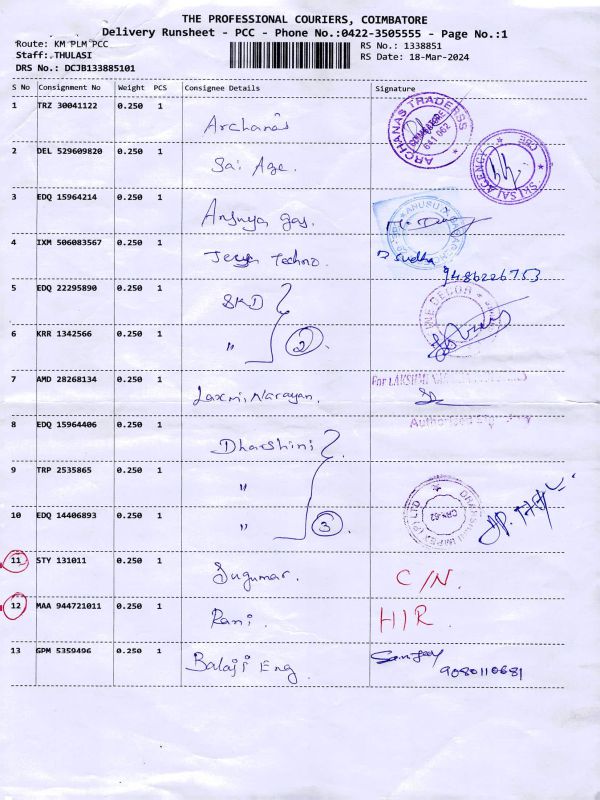 THE PROFESSIONAL COURIERS, COIMBATORE
Delivery Runsheet - PCC - Phone No.:0422-3505555 - Page No.:1
Route: KM PLM PCC
RS No.: 1338851
Staff: THULASI
RS Date: 18-Mar-2024
DRS No.: DCJB133885101
S No Consignment No Weight PCS Consignee Details Signature
1 TRZ 30041122 0.250 1 Archanas
ARCHANAS TRADERSS
2 DEL 529609820 0.250 1 Sai Age.
SRI SAI AGENCY
CBE
3 EDQ 15964214 0.250 1 Ansuya gas.
4 IXM 506083567 0.250 1 Techno. Sudha
9486226753
5 EDQ 22295890 0.250 1 SKD
6 KRR 1342566 0.250 1 〃 2
7 AMD 28268134 0.250 1 Laxmi Narayan.
For LAKSHMI
8 EDQ 15964406 0.250 1 Dharshini
Authorised
9 TRP 2535865 0.250 1 〃
10 EDQ 14406893 0.250 1 〃 3
11 STY 131011 0.250 1 Sugumar. C/N.
12 MAA 944721011 0.250 1 Rani. H/R.
13 GPM 5359496 0.250 1 Balaji Eng. Sanjay
9080110681